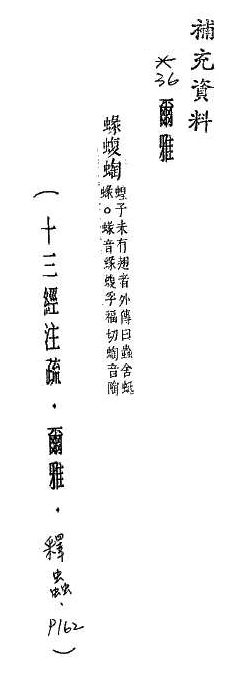 補充資料
*36 爾雅
蝝蝮蜪
蝗子未有翅者外傳曰蟲舍蚳
蝝。蝝音緣蝮孚福切蜪音陶
(十三經注疏・爾雅・釋蟲、P162)